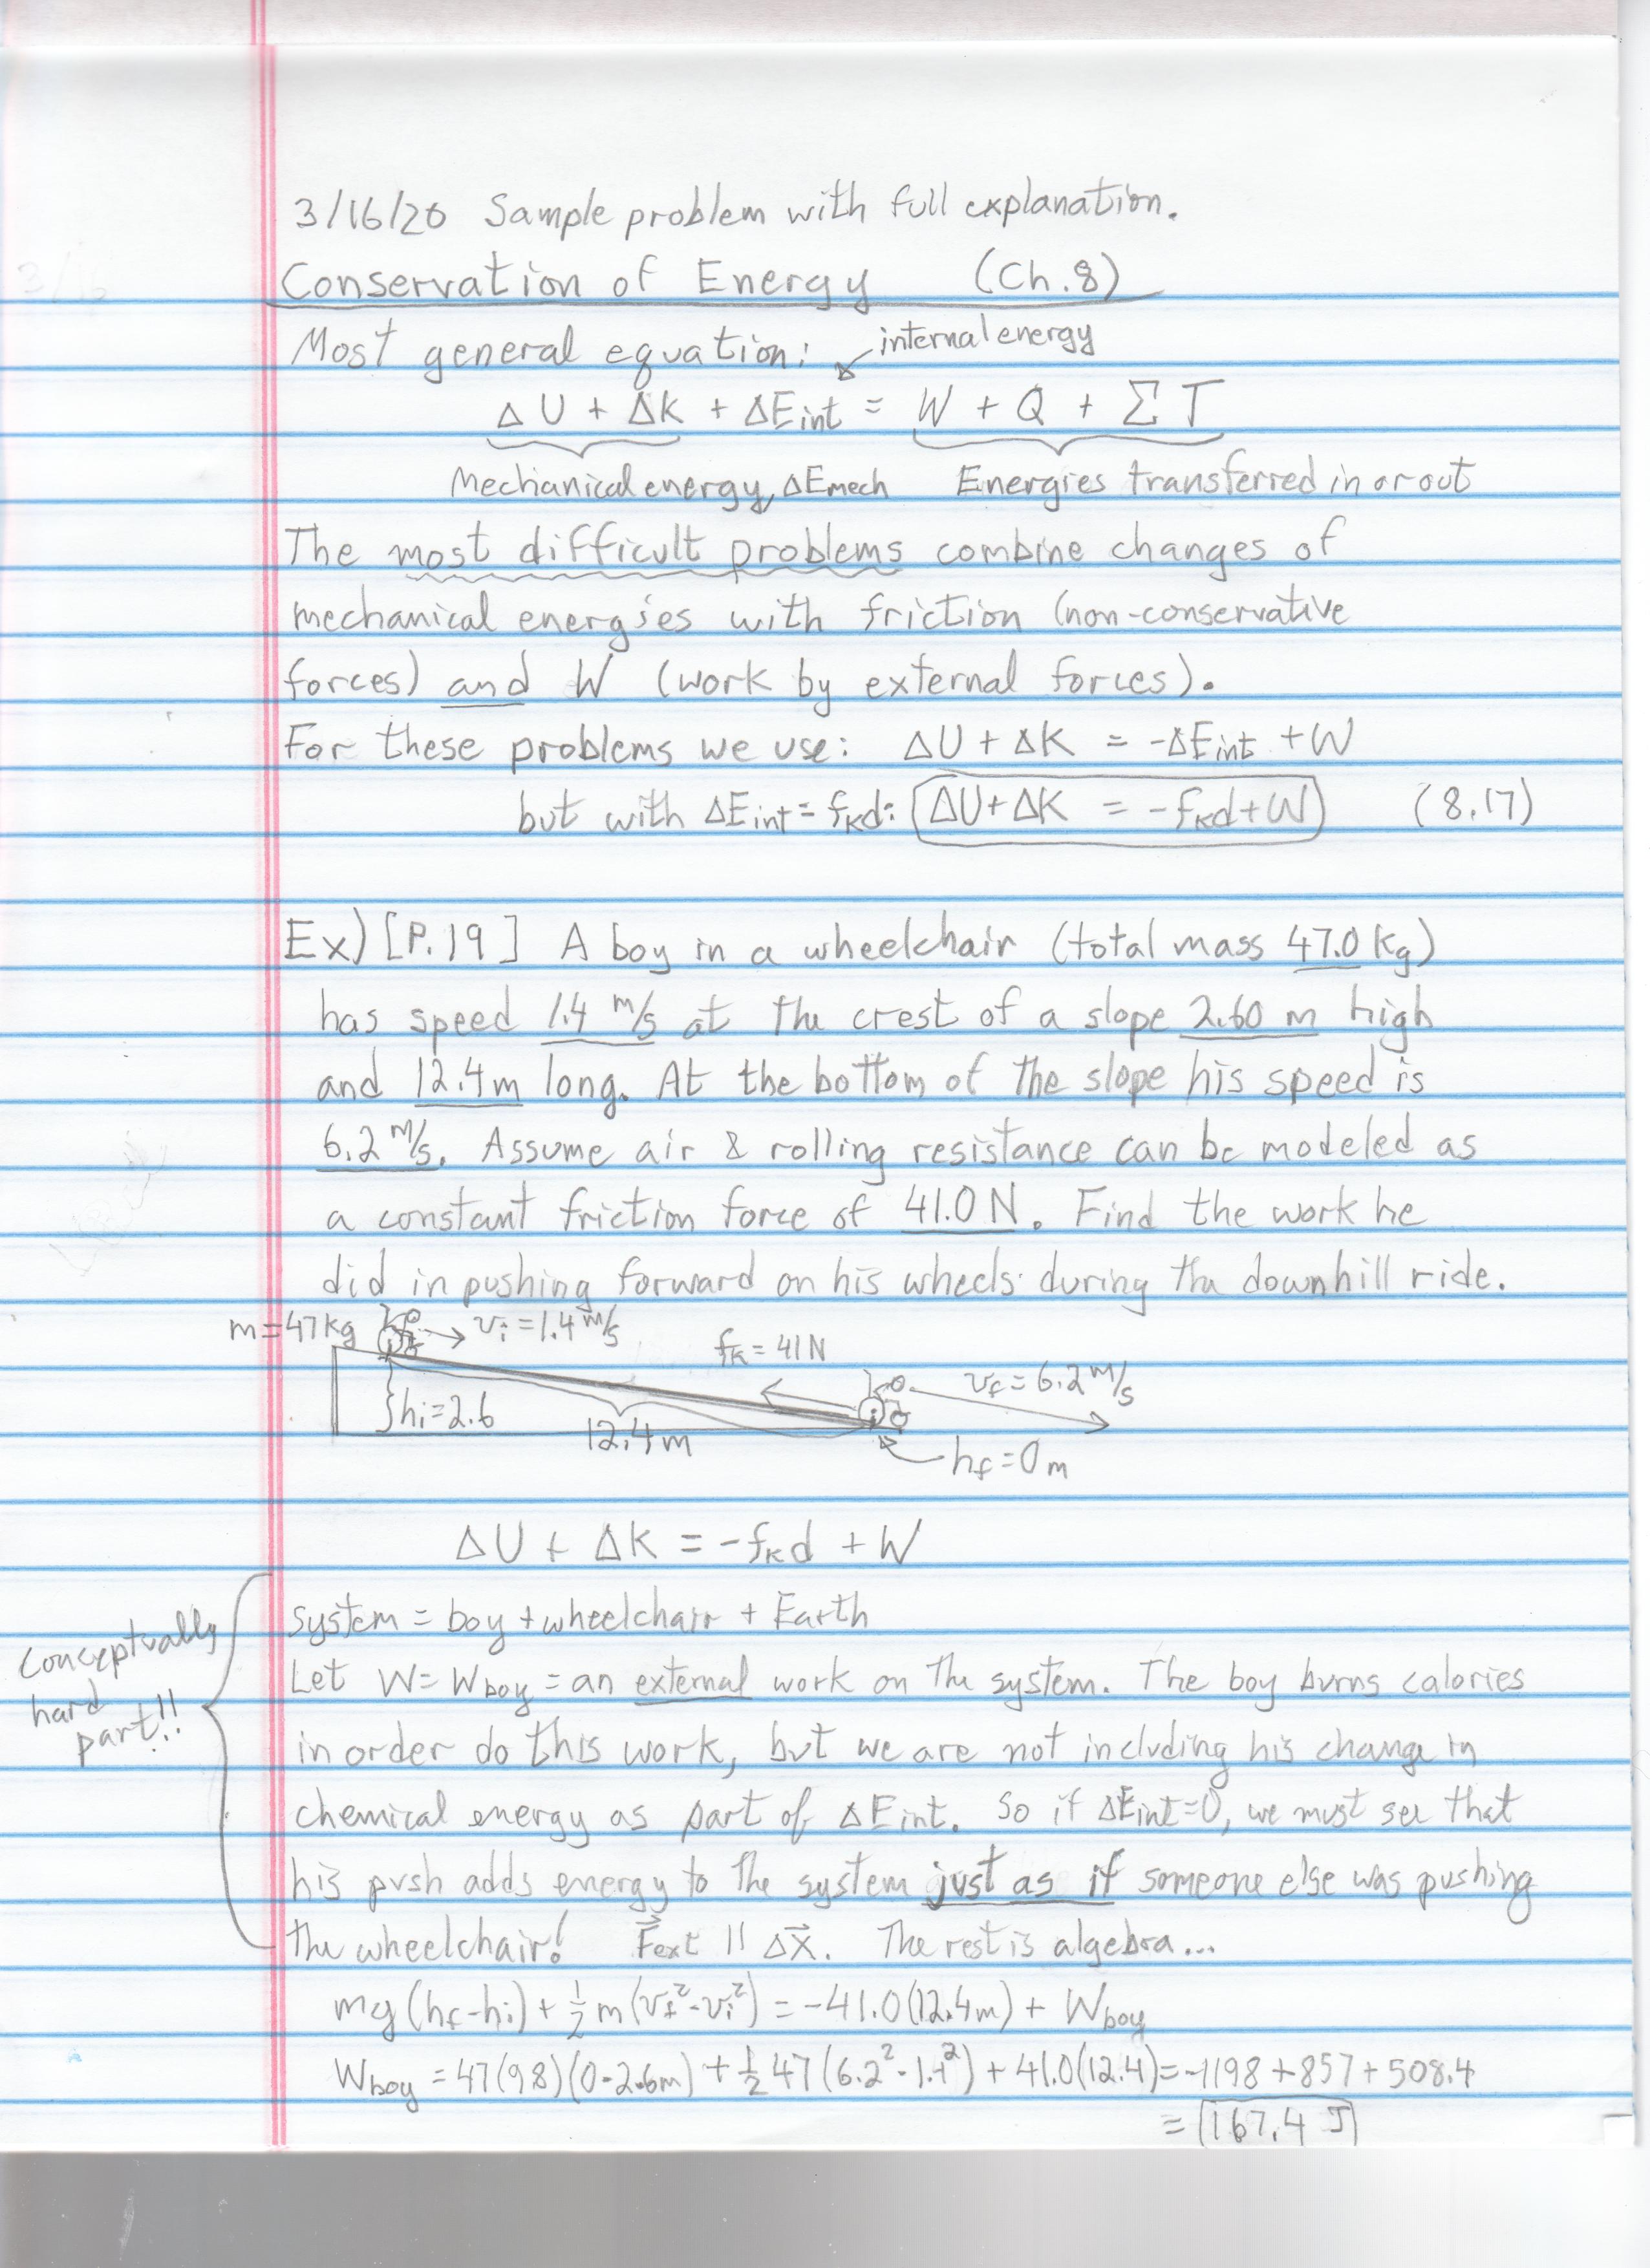 3/16/20 Sample problem with full explanation.
Conservation of Energy (Ch.8)
Most general equation: internal energy
ΔU + ΔK + ΔEint = W + Q + ΣT
Mechanical energy, ΔEmech Energies transferred in or out
The most difficult problems combine changes of
mechanical energies with friction (non-conservative
forces) and W (work by external forces).
For these problems we use: ΔU + ΔK = -ΔEint + W
but with ΔEint = fkd: ΔU+ΔK = -fkd+W (8.17)
Ex) [P.19] A boy in a wheelchair (total mass 47.0 kg)
has speed 1.4 m/s at the crest of a slope 2.60 m high
and 12.4m long. At the bottom of the slope his speed is
6.2 m/s. Assume air & rolling resistance can be modeled as
a constant friction force of 41.0 N. Find the work he
did in pushing forward on his wheels during the downhill ride.
m=47kg vi=1.4 m/s fk=41N
vf=6.2 m/s
hi=2.6
12.4m
hf=0m
ΔU + ΔK = -fkd + W
System = boy + wheelchair + Earth
Let W = Wboy = an external work on the system. The boy burns calories
in order do this work, but we are not including his change in
chemical energy as part of ΔEint. So if ΔEint=0, we must see that
his push adds energy to the system just as if someone else was pushing
the wheelchair! F⃗ext || Δx⃗. The rest is algebra...
Conceptually
hard
part!!
mg(hf-hi) + ½m(vf²-vi²) = -41.0(12.4m) + Wboy
Wboy = 47(9.8)(0-2.6m) + ½47(6.2²-1.4²) + 41.0(12.4) = -1198 + 857 + 508.4
= 167.4 J